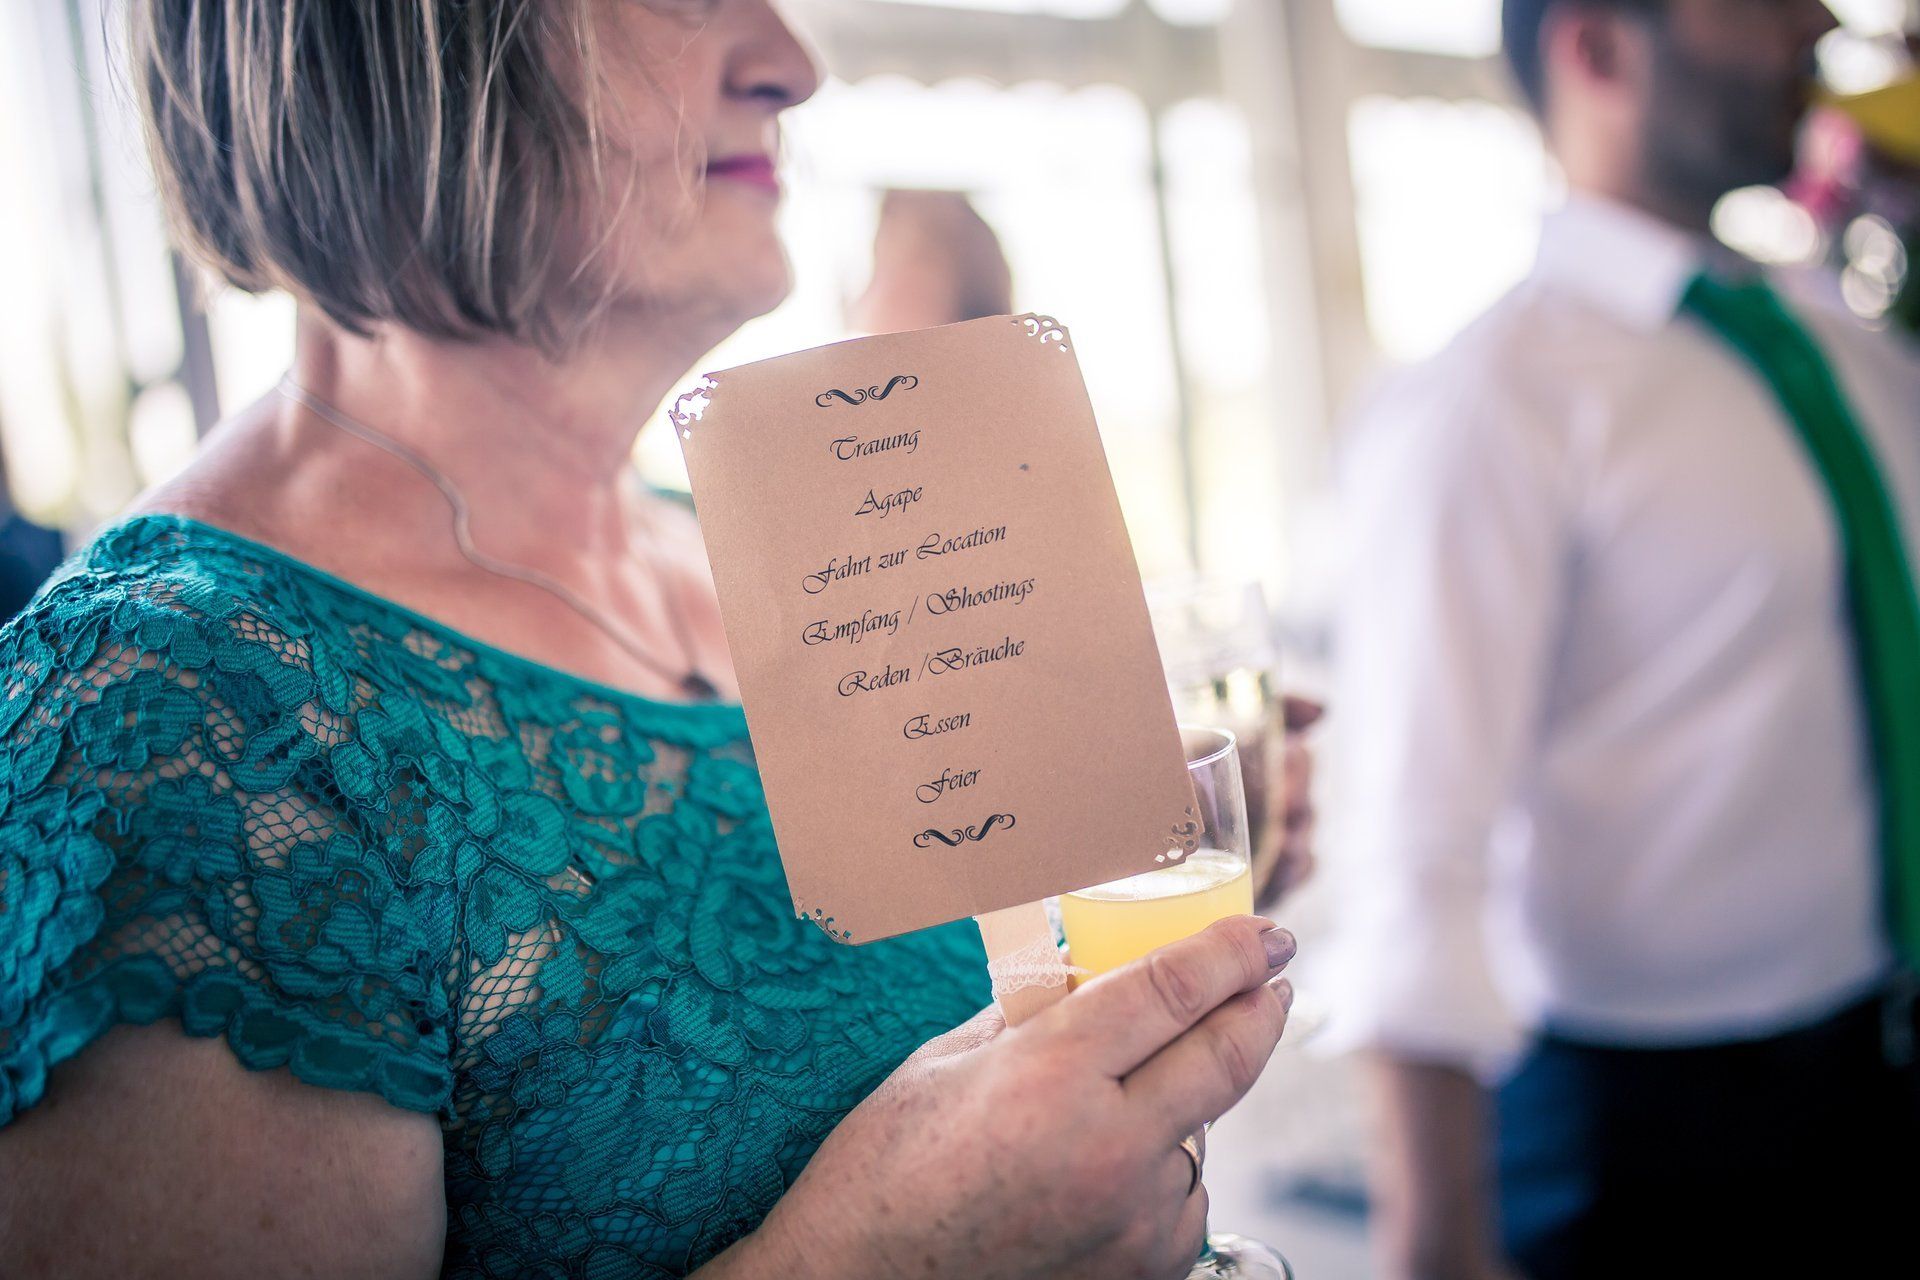 Trauung
Agape
Fahrt zur Location
Empfang / Shootings
Reden /Bräuche
Essen
Feier